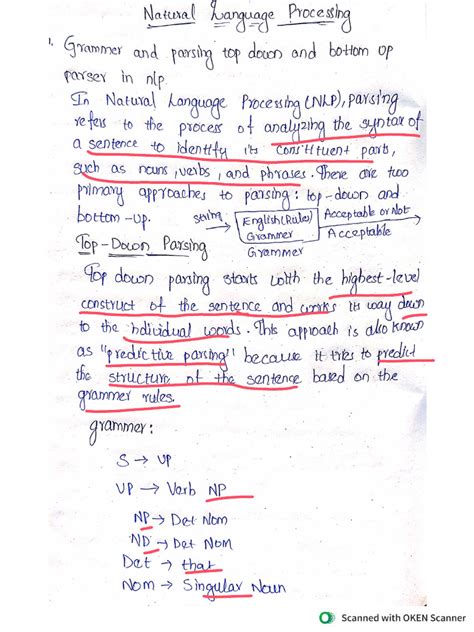 Natural Language Processing
1. Grammer and parsing top down and bottom up
parser in nlp.
In Natural Language Processing (NLP), parsing
refers to the process of analyzing the syntax of
a sentence to identify its constituent parts,
such as nouns, verbs, and phrases. There are two
primary approaches to parsing: top-down and
bottom-up.
string → English(Rules) Grammer → Acceptable or Not Acceptable
Grammer
Top-Down Parsing
Top down parsing starts with the highest-level
construct of the sentence and works its way down
to the individual words. This approach is also known
as "predictive parsing" because it tries to predict
the structure of the sentence based on the
grammer rules.
grammer:
S → VP
VP → Verb NP
NP → Det Nom
ND → Det Nom
Det → that
Nom → Singular Noun
Scanned with OKEN Scanner